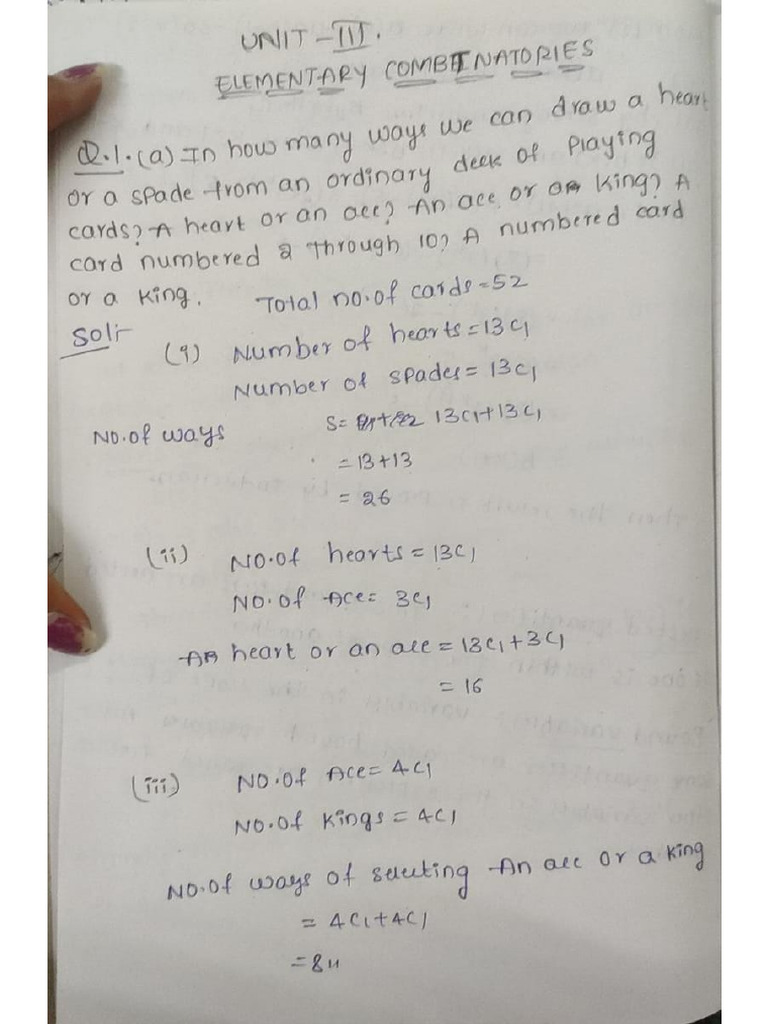 UNIT-III.
ELEMENTARY COMBINATORIES
Q.1.(a) In how many ways we can draw a heart
or a spade from an ordinary deck of playing
cards? A heart or an ace? An ace or a king? A
card numbered 2 through 10? A numbered card
or a king. Total no.of cards=52
Sol:-
(i) Number of hearts=13C1
Number of spades=13C1
No.of ways S= 13C1+13C1
=13+13
=26
(ii) NO.Of hearts=13C1
NO.Of Ace=3C1
A heart or an ace=13C1+3C1
=16
(iii) NO.Of Ace=4C1
NO.Of Kings=4C1
NO.Of ways of selecting An ace or a king
=4C1+4C1
=8